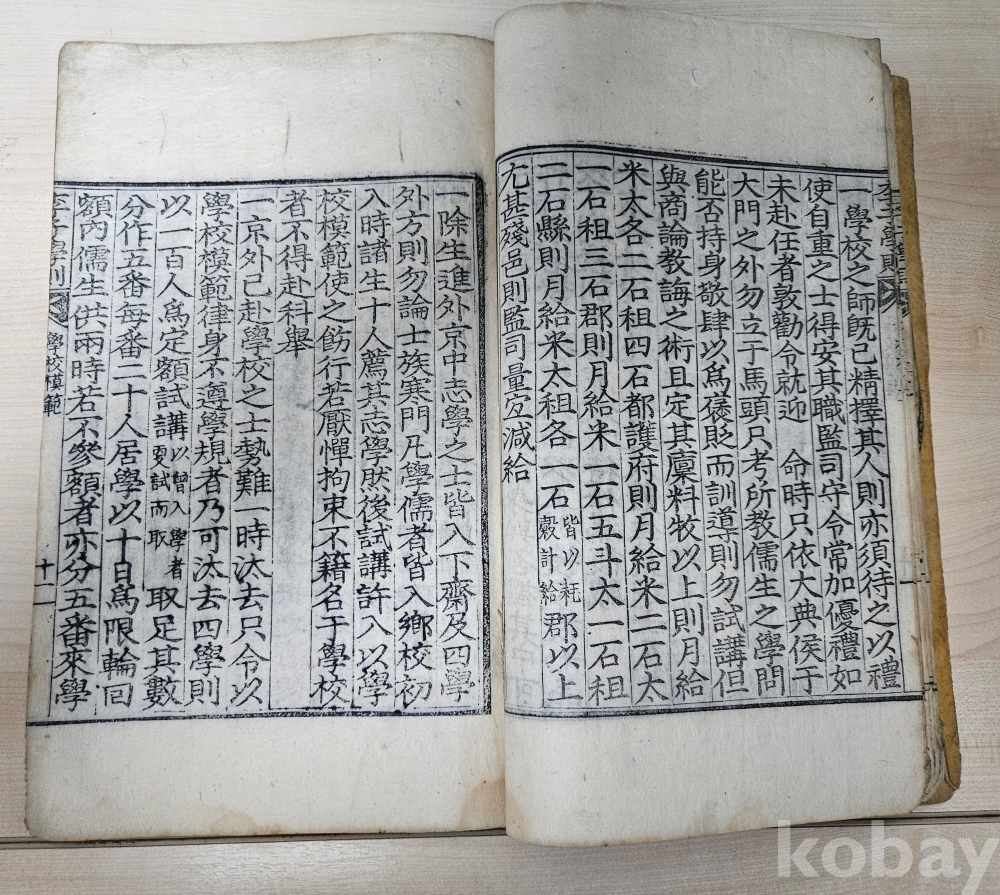 一學校之師旣已精擇其人則亦須待之以禮
使自重之士得安其職監司守令常加優禮如
未赴任者敦勸令就迎 命時只依大典侯于
大門之外勿立于馬頭只考所教儒生之學問
能否持身敬肆以爲襃貶而訓導則勿試講但
與商論教誨之術且定其廩料牧以上則月給
米太各二石租四石都護府則月給米二石太
一石租三石郡則月給米一石五斗太一石租
二石縣則月給米太租各一石皆以耗穀計給郡以上
尤甚殘邑則監司量宜減給
一除生進外京中志學之士皆入下齋及四學
外方則勿論士族寒門凡學儒者皆入鄉校初
入時諸生十人薦其志學然後試講許入以學
校模範使之飭行若厭憚拘束不籍名于學校
者不得赴科舉
一京外已赴學校之士勢難一時汰去只令以
學校模範律身不遵學規者乃可汰去四學則
以一百人爲定額試講以曾入學者更試而取取足其數
分作五番每番二十人居學以十日爲限輪回
額內儒生供兩時若不參額者亦分五番來學
學校模範
十一
kobay